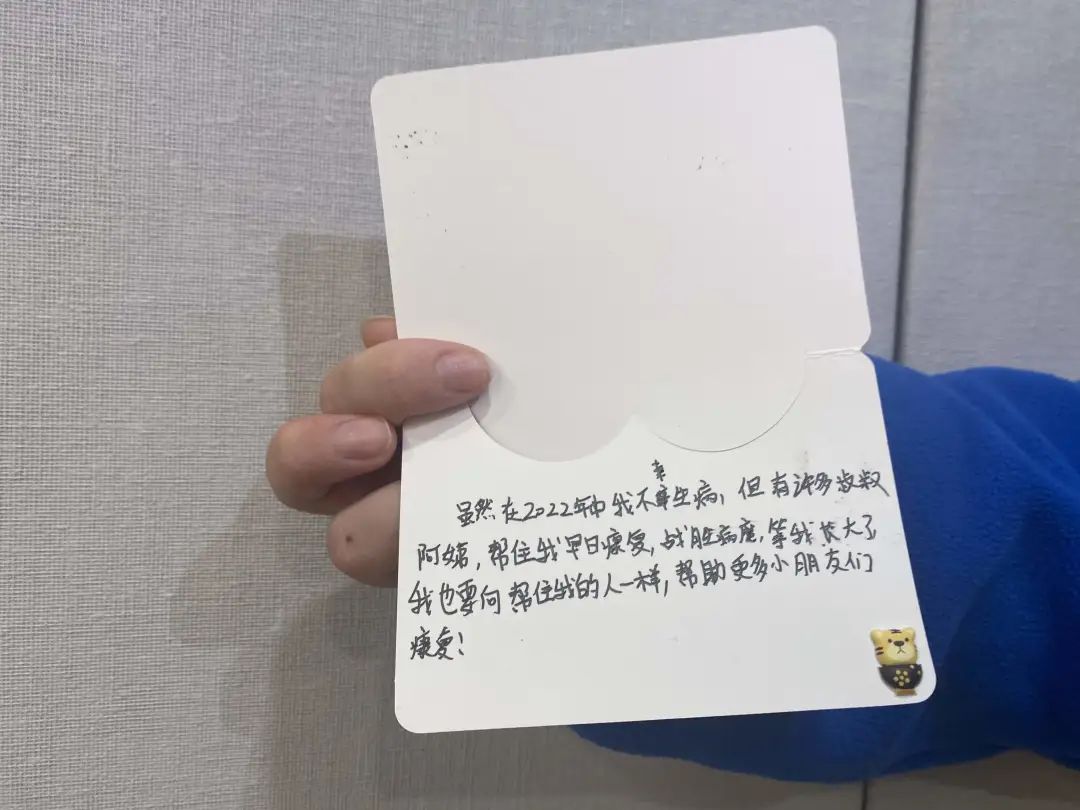 幸
虽然在2022年中我不幸生病，但有许多叔叔
阿姨，帮住我早日康复，战胜病魔，等我长大了
我也要向帮住我的人一样，帮助更多小朋友们
康复！